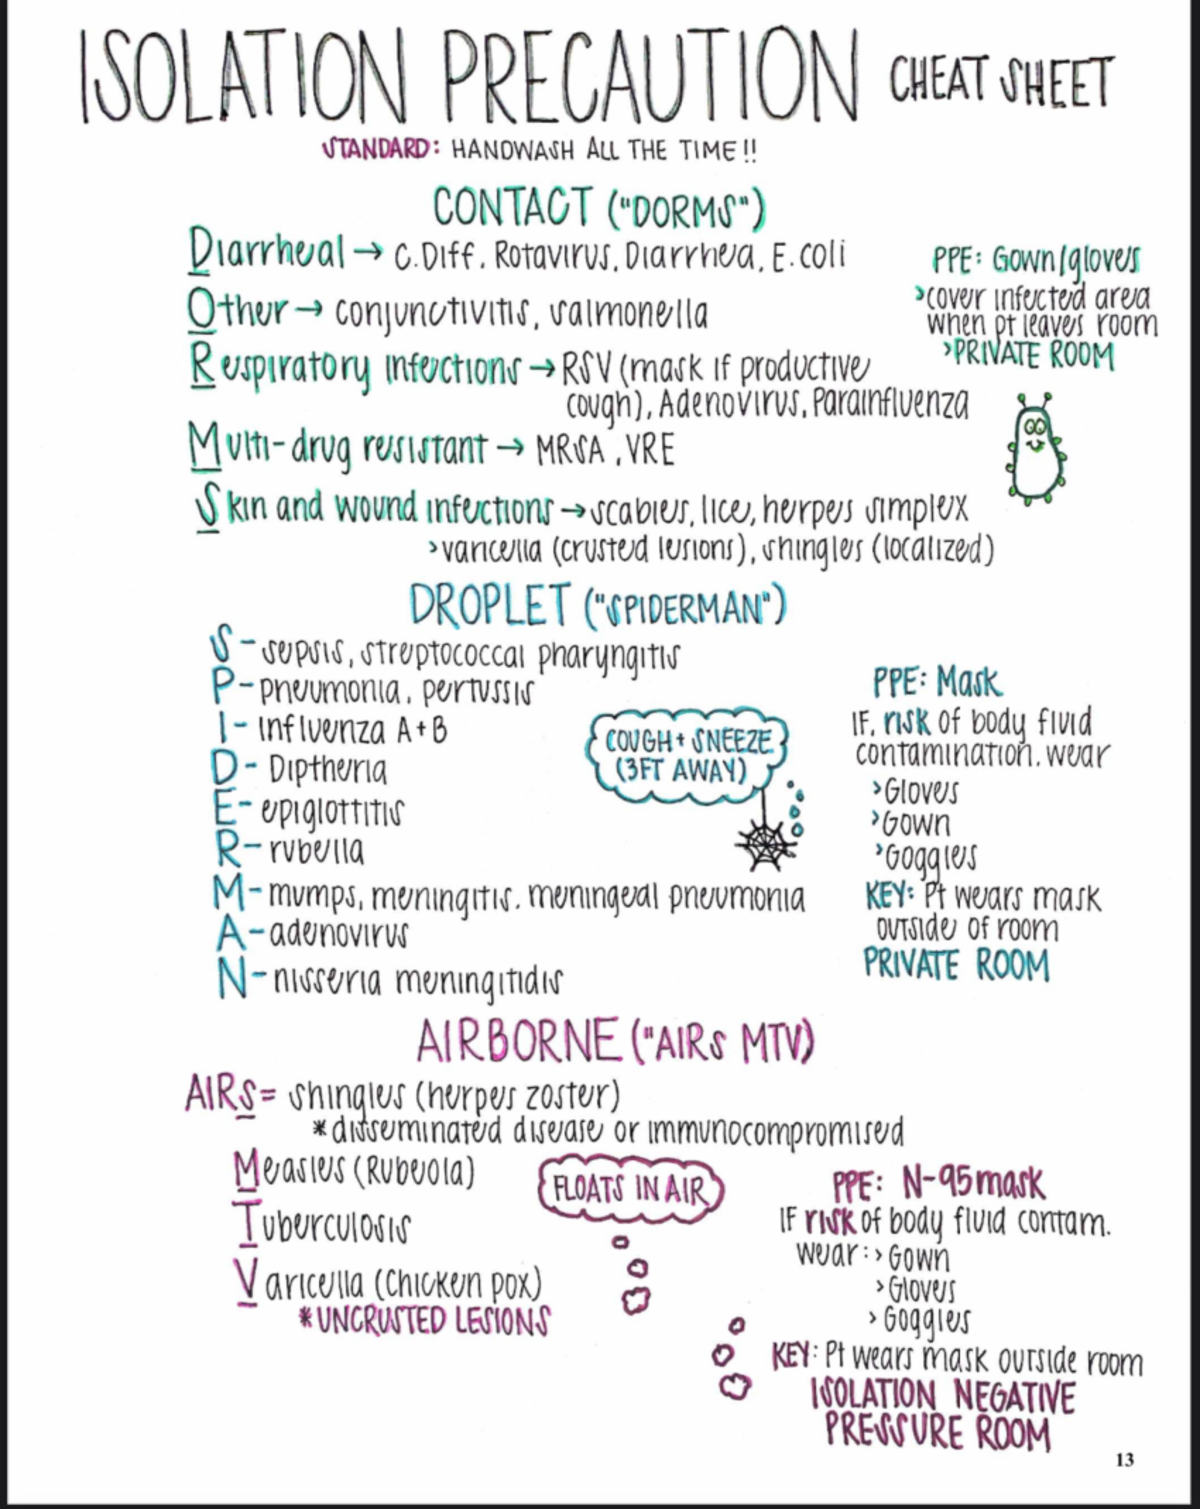 ISOLATION PRECAUTION CHEAT SHEET
STANDARD: HANDWASH ALL THE TIME!!
CONTACT ("DORMS")
Diarrheal → C.Diff, Rotavirus, Diarrhea, E.coli
Other → conjunctivitis, salmonella
Respiratory infections → RSV (mask if productive
cough), Adenovirus, Parainfluenza
Multi-drug resistant → MRSA, VRE
Skin and wound infections → scabies, lice, herpes simplex
>varicella (crusted lesions), shingles (localized)
PPE: Gown/gloves
>cover infected area
when pt leaves room
>PRIVATE ROOM
DROPLET ("SPIDERMAN")
S- sepsis, streptococcal pharyngitis
P- pneumonia, pertussis
I- Influenza A+B
D- Diptheria
E- epiglottitis
R- rubella
M- mumps, meningitis, meningeal pneumonia
A- adenovirus
N- nisseria meningitidis
COUGH + SNEEZE
(3FT AWAY)
PPE: Mask
IF, risk of body fluid
contamination, wear
>Gloves
>Gown
>Goggles
KEY: Pt wears mask
outside of room
PRIVATE ROOM
AIRBORNE ("AIRs MTV)
AIRs= shingles (herpes zoster)
*disseminated disease or immunocompromised
Measles (Rubeola)
Tuberculosis
Varicella (Chicken pox)
*UNCRUSTED LESIONS
FLOATS IN AIR
PPE: N-95 mask
IF risk of body fluid contam.
wear: > Gown
>Gloves
> Goggles
KEY: Pt wears mask outside room
ISOLATION NEGATIVE
PRESSURE ROOM
13